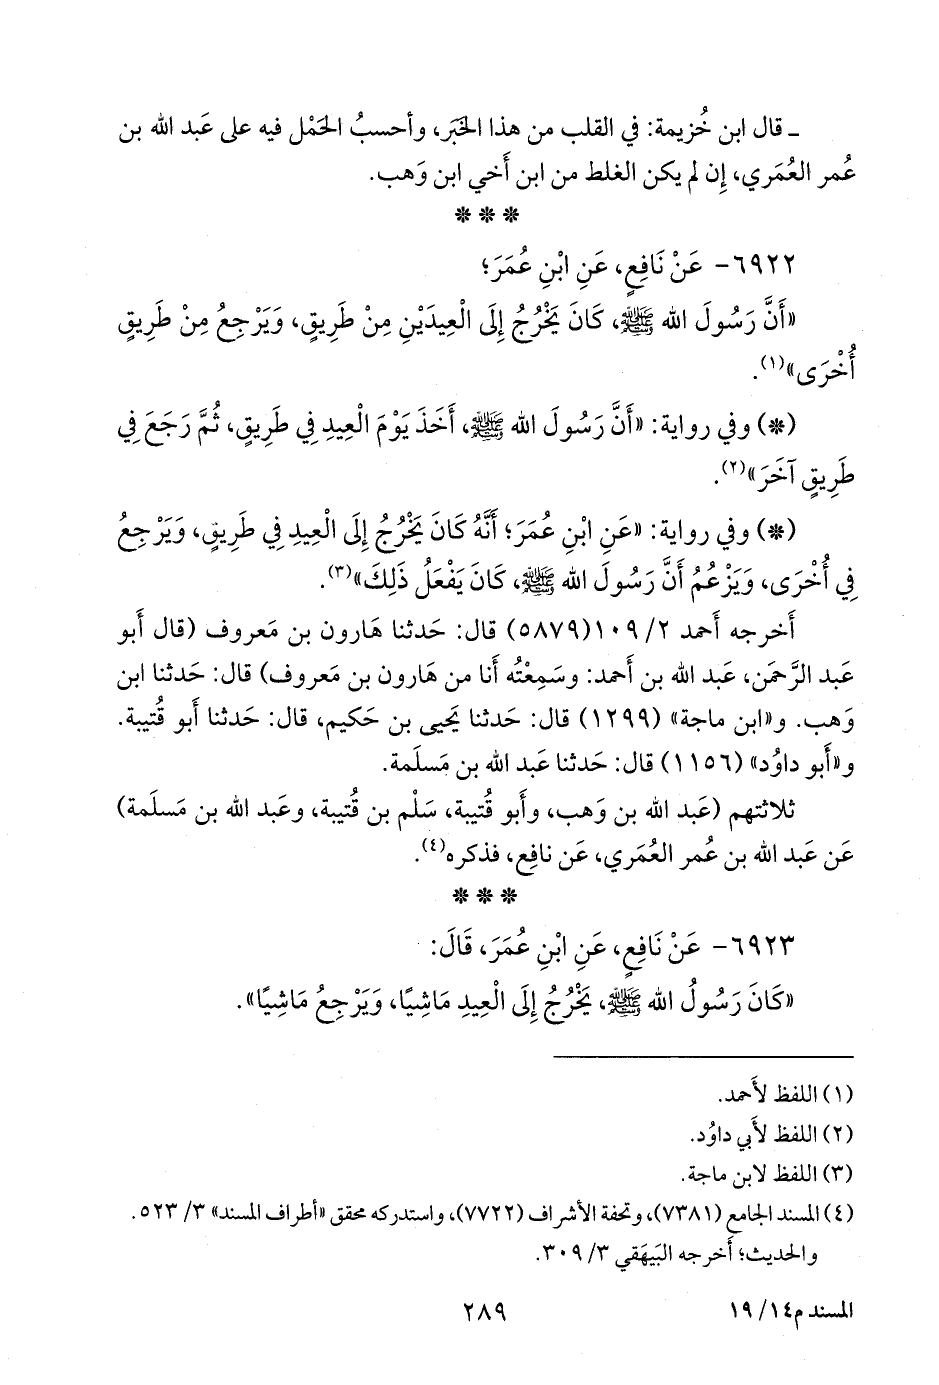 ـ قال ابن خُزيمة: في القلب من هذا الخَبَر، وأحسبُ الحَمْل فيه على عَبد الله بن
عُمر العُمَري، إِن لم يكن الغلط من ابن أَخي ابن وَهب.
* * *
٦٩٢٢- عَنْ نَافِعٍ، عَنِ ابْنِ عُمَرَ؛
«أَنَّ رَسُولَ الله ﷺ، كَانَ يَخْرُجُ إِلَى الْعِيدَيْنِ مِنْ طَرِيقٍ، وَيَرْجِعُ مِنْ طَرِيقٍ
أُخْرَى»(١).
(*) وفي رواية: «أَنَّ رَسُولَ الله ﷺ، أَخَذَ يَوْمَ الْعِيدِ فِي طَرِيقٍ، ثُمَّ رَجَعَ فِي
طَرِيقٍ آخَرَ»(٢).
(*) وفي رواية: «عَنِ ابْنِ عُمَرَ؛ أَنَّهُ كَانَ يَخْرُجُ إِلَى الْعِيدِ فِي طَرِيقٍ، وَيَرْجِعُ
فِي أُخْرَى، وَيَزْعُمُ أَنَّ رَسُولَ الله ﷺ، كَانَ يَفْعَلُ ذَلِكَ»(٣).
أَخرجه أَحمد ٢/ ١٠٩(٥٨٧٩) قال: حَدثنا هَارون بن مَعروف (قال أَبو
عَبد الرَّحمَن، عَبد الله بن أَحمد: وسَمِعْتُه أَنا من هَارون بن مَعروف) قال: حَدثنا ابن
وَهب. و«ابن ماجة» (١٢٩٩) قال: حَدثنا يَحيى بن حَكيم، قال: حَدثنا أَبو قُتيبة.
و«أَبو داوُد» (١١٥٦) قال: حَدثنا عَبد الله بن مَسلَمة.
ثلاثتهم (عَبد الله بن وَهب، وأَبو قُتيبة، سَلْم بن قُتيبة، وعَبد الله بن مَسلَمة)
عَن عَبد الله بن عُمر العُمَري، عَن نافِع، فذكره(٤).
* * *
٦٩٢٣- عَنْ نَافِعٍ، عَنِ ابْنِ عُمَرَ، قَالَ:
«كَانَ رَسُولُ الله ﷺ، يَخْرُجُ إِلَى الْعِيدِ مَاشِيًا، وَيَرْجِعُ مَاشِيًا».
(١) اللفظ لأَحمد.
(٢) اللفظ لأَبي داوُد.
(٣) اللفظ لابن ماجة.
(٤) المسند الجامع (٧٣٨١)، وتحفة الأشراف (٧٧٢٢)، واستدركه محقق «أطراف المسند» ٣/ ٥٢٣.
والحديث؛ أَخرجه البَيهَقي ٣/ ٣٠٩.
المسند م١٤/ ١٩
٢٨٩